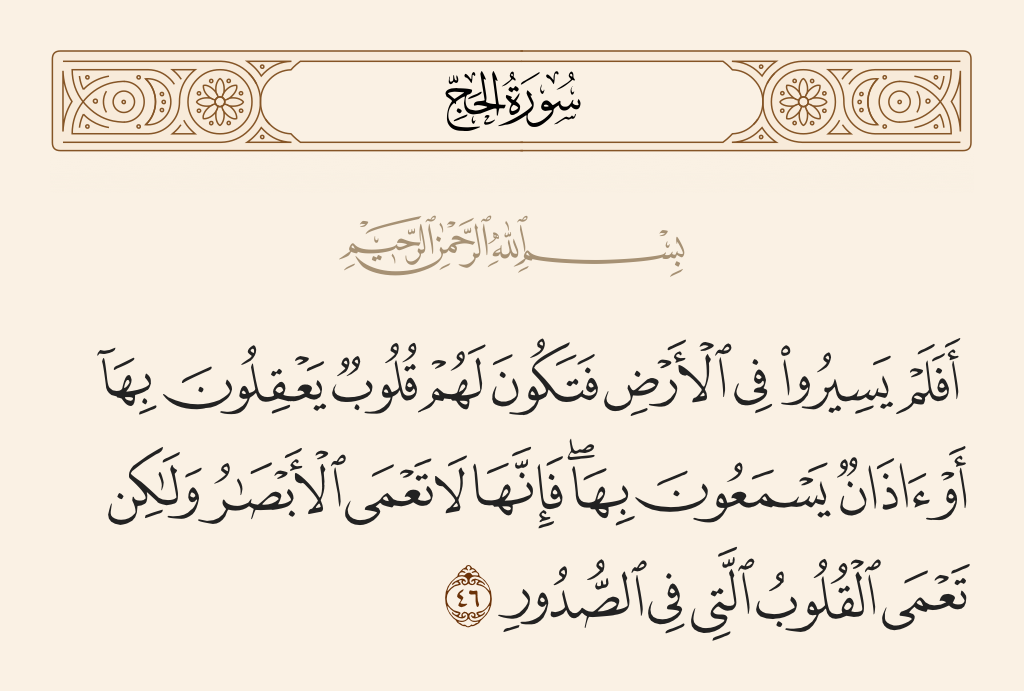 سُورَةُ الْحَجِّ
بِسْمِ ٱللَّهِ ٱلرَّحْمَٰنِ ٱلرَّحِيمِ
أَفَلَمْ يَسِيرُوا۟ فِى ٱلْأَرْضِ فَتَكُونَ لَهُمْ قُلُوبٌ يَعْقِلُونَ بِهَآ
أَوْ ءَاذَانٌ يَسْمَعُونَ بِهَا ۖ فَإِنَّهَا لَا تَعْمَى ٱلْأَبْصَـٰرُ وَلَـٰكِن
تَعْمَى ٱلْقُلُوبُ ٱلَّتِى فِى ٱلصُّدُورِ ٤٦